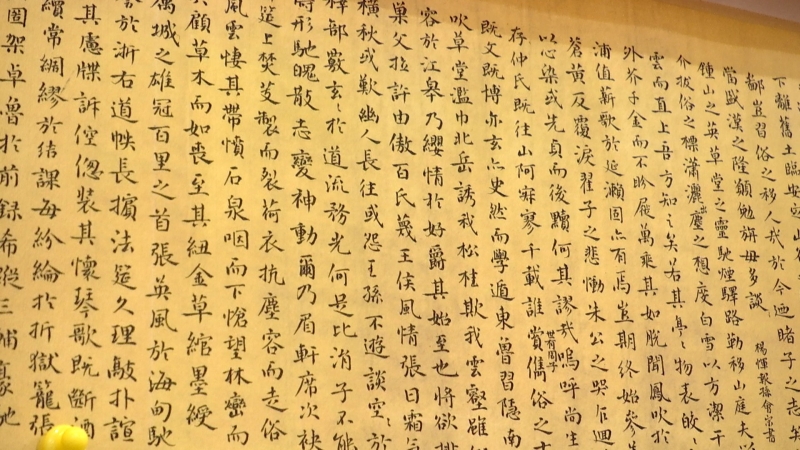 下離舊土臨安定山谷
鄙豈習俗之移人哉於今迺睹子之志矣
當盛漢之隆願勉旃毋多談
楊惲報孫會宗書
鍾山之英草堂之靈馳煙驛路勒移山庭夫以
介拔俗之標瀟灑出塵之想度白雪以方潔干
雲而直上吾方知之矣若其亭〻物表皎〻
外芥千金而不盼屣萬乘其如脫聞鳳吹於
浦值薪歌於延瀨固亦有焉豈期終始參差
蒼黃反覆淚翟子之悲慟朱公之哭乍迴
以心染或先貞而後黷何其謬哉嗚呼尚生
存仲氏既往山阿寂寥千載誰賞世有周子儁俗之士
既文既博亦玄亦史然而學遁東魯習隱南
吹草堂濫巾北岳誘我松桂欺我雲壑雖假
容於江皋乃纓情於好爵其始至也將欲排
巢父拉許由傲百氏蔑王侯風情張日霜氣
橫秋或歎幽人長往或怨王孫不遊談空〻於
釋部覈玄〻於道流務光何足比涓子不能
時形馳魄散志變神動爾乃眉軒席次袂
筵上焚芰製而裂荷衣抗塵容而走俗
風雲悽其帶憤石泉咽而下愴望林巒而
顧草木而如喪至其紐金草綰墨綬
屬城之雄冠百里之首張英風於海甸馳
於浙右道帙長擯法筵久理敲扑諠
其慮牒訴倥傯裝其懷琴歌既斷酒
續常綢繆於結課每紛綸於折獄籠張
圖架卓魯於前錄希蹤三輔豪馳